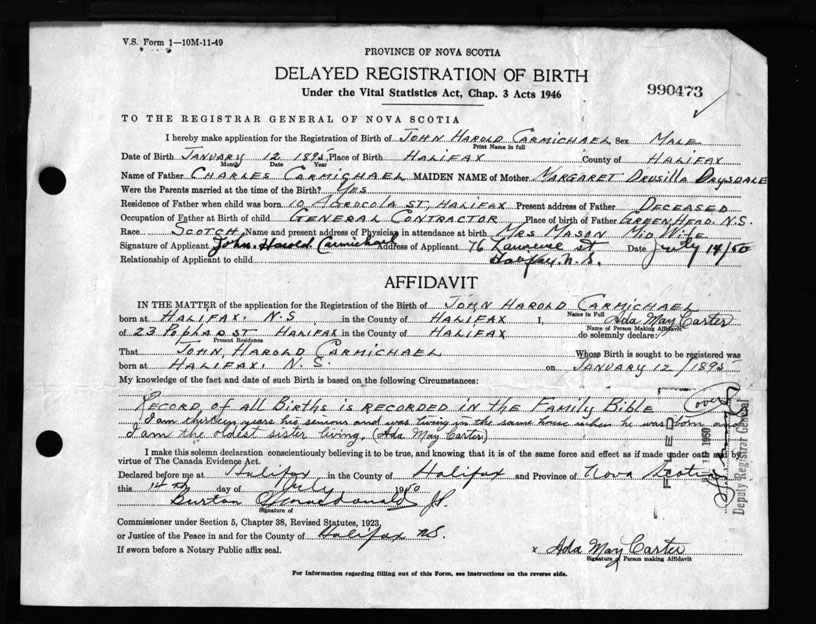 V.S. Form 1—10M-11-49
PROVINCE OF NOVA SCOTIA
DELAYED REGISTRATION OF BIRTH
Under the Vital Statistics Act, Chap. 3 Acts 1946
990473
TO THE REGISTRAR GENERAL OF NOVA SCOTIA
I hereby make application for the Registration of Birth of JOHN HAROLD CARMICHAEL Sex MALE
Print Name in full
Date of Birth JANUARY 12 1895, Place of Birth HALIFAX County of HALIFAX
Month Date Year
Name of Father CHARLES CARMICHAEL MAIDEN NAME of Mother MARGARET DRUSILLA DRYSDALE
Were the Parents married at the time of the Birth? YES
Residence of Father when child was born 10 AGROCOLA ST, HALIFAX Present address of Father DECEASED
Occupation of Father at Birth of child GENERAL CONTRACTOR Place of birth of Father GREEN HEAD N.S.
Race SCOTCH Name and present address of Physician in attendance at birth MRS MASON MID WIFE
Signature of Applicant John Harold Carmichael Address of Applicant 76 st Date July 14/50
Relationship of Applicant to child Halifax. N.S.
AFFIDAVIT
IN THE MATTER of the application for the Registration of the Birth of JOHN HAROLD CARMICHAEL
Name in Full
born at HALIFAX. N.S in the County of HALIFAX I, Ada May Carter
Name of Person Making Affidavit
of 23 ST HALIFAX in the County of HALIFAX do solemnly declare:
Present Residence
That JOHN HAROLD CARMICHAEL Whose Birth is sought to be registered was
born at HALIFAX. N.S. on JANUARY 12/1895
My knowledge of the fact and date of such Birth is based on the following Circumstances:
RECORD OF ALL BIRTHS IS RECORDED IN THE FAMILY BIBLE (over)
I am years his seniour and was living in the same house when he was born and
I am the oldest sister living, (Ada May Carter)
I make this solemn declaration conscientiously believing it to be true, and knowing that it is of the same force and effect as if made under oath by
virtue of The Canada Evidence Act.
Declared before me at Halifax in the County of Halifax and Province of Nova Scotia
this 14 th day of July 1950
Burton J.P.
Signature of
Commissioner under Section 5, Chapter 38, Revised Statutes, 1923,
or Justice of the Peace in and for the County of Halifax N.S.
If sworn before a Notary Public affix seal.
x Ada May Carter
Signature of Person making Affidavit
For Information regarding filling out of this Form, see instructions on the reverse side.
FILED
1950
Deputy Registrar General